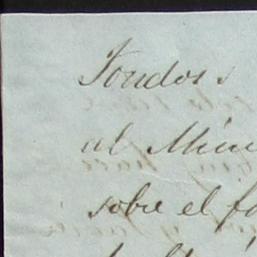 Fondos s
al Mini
sobre el fa